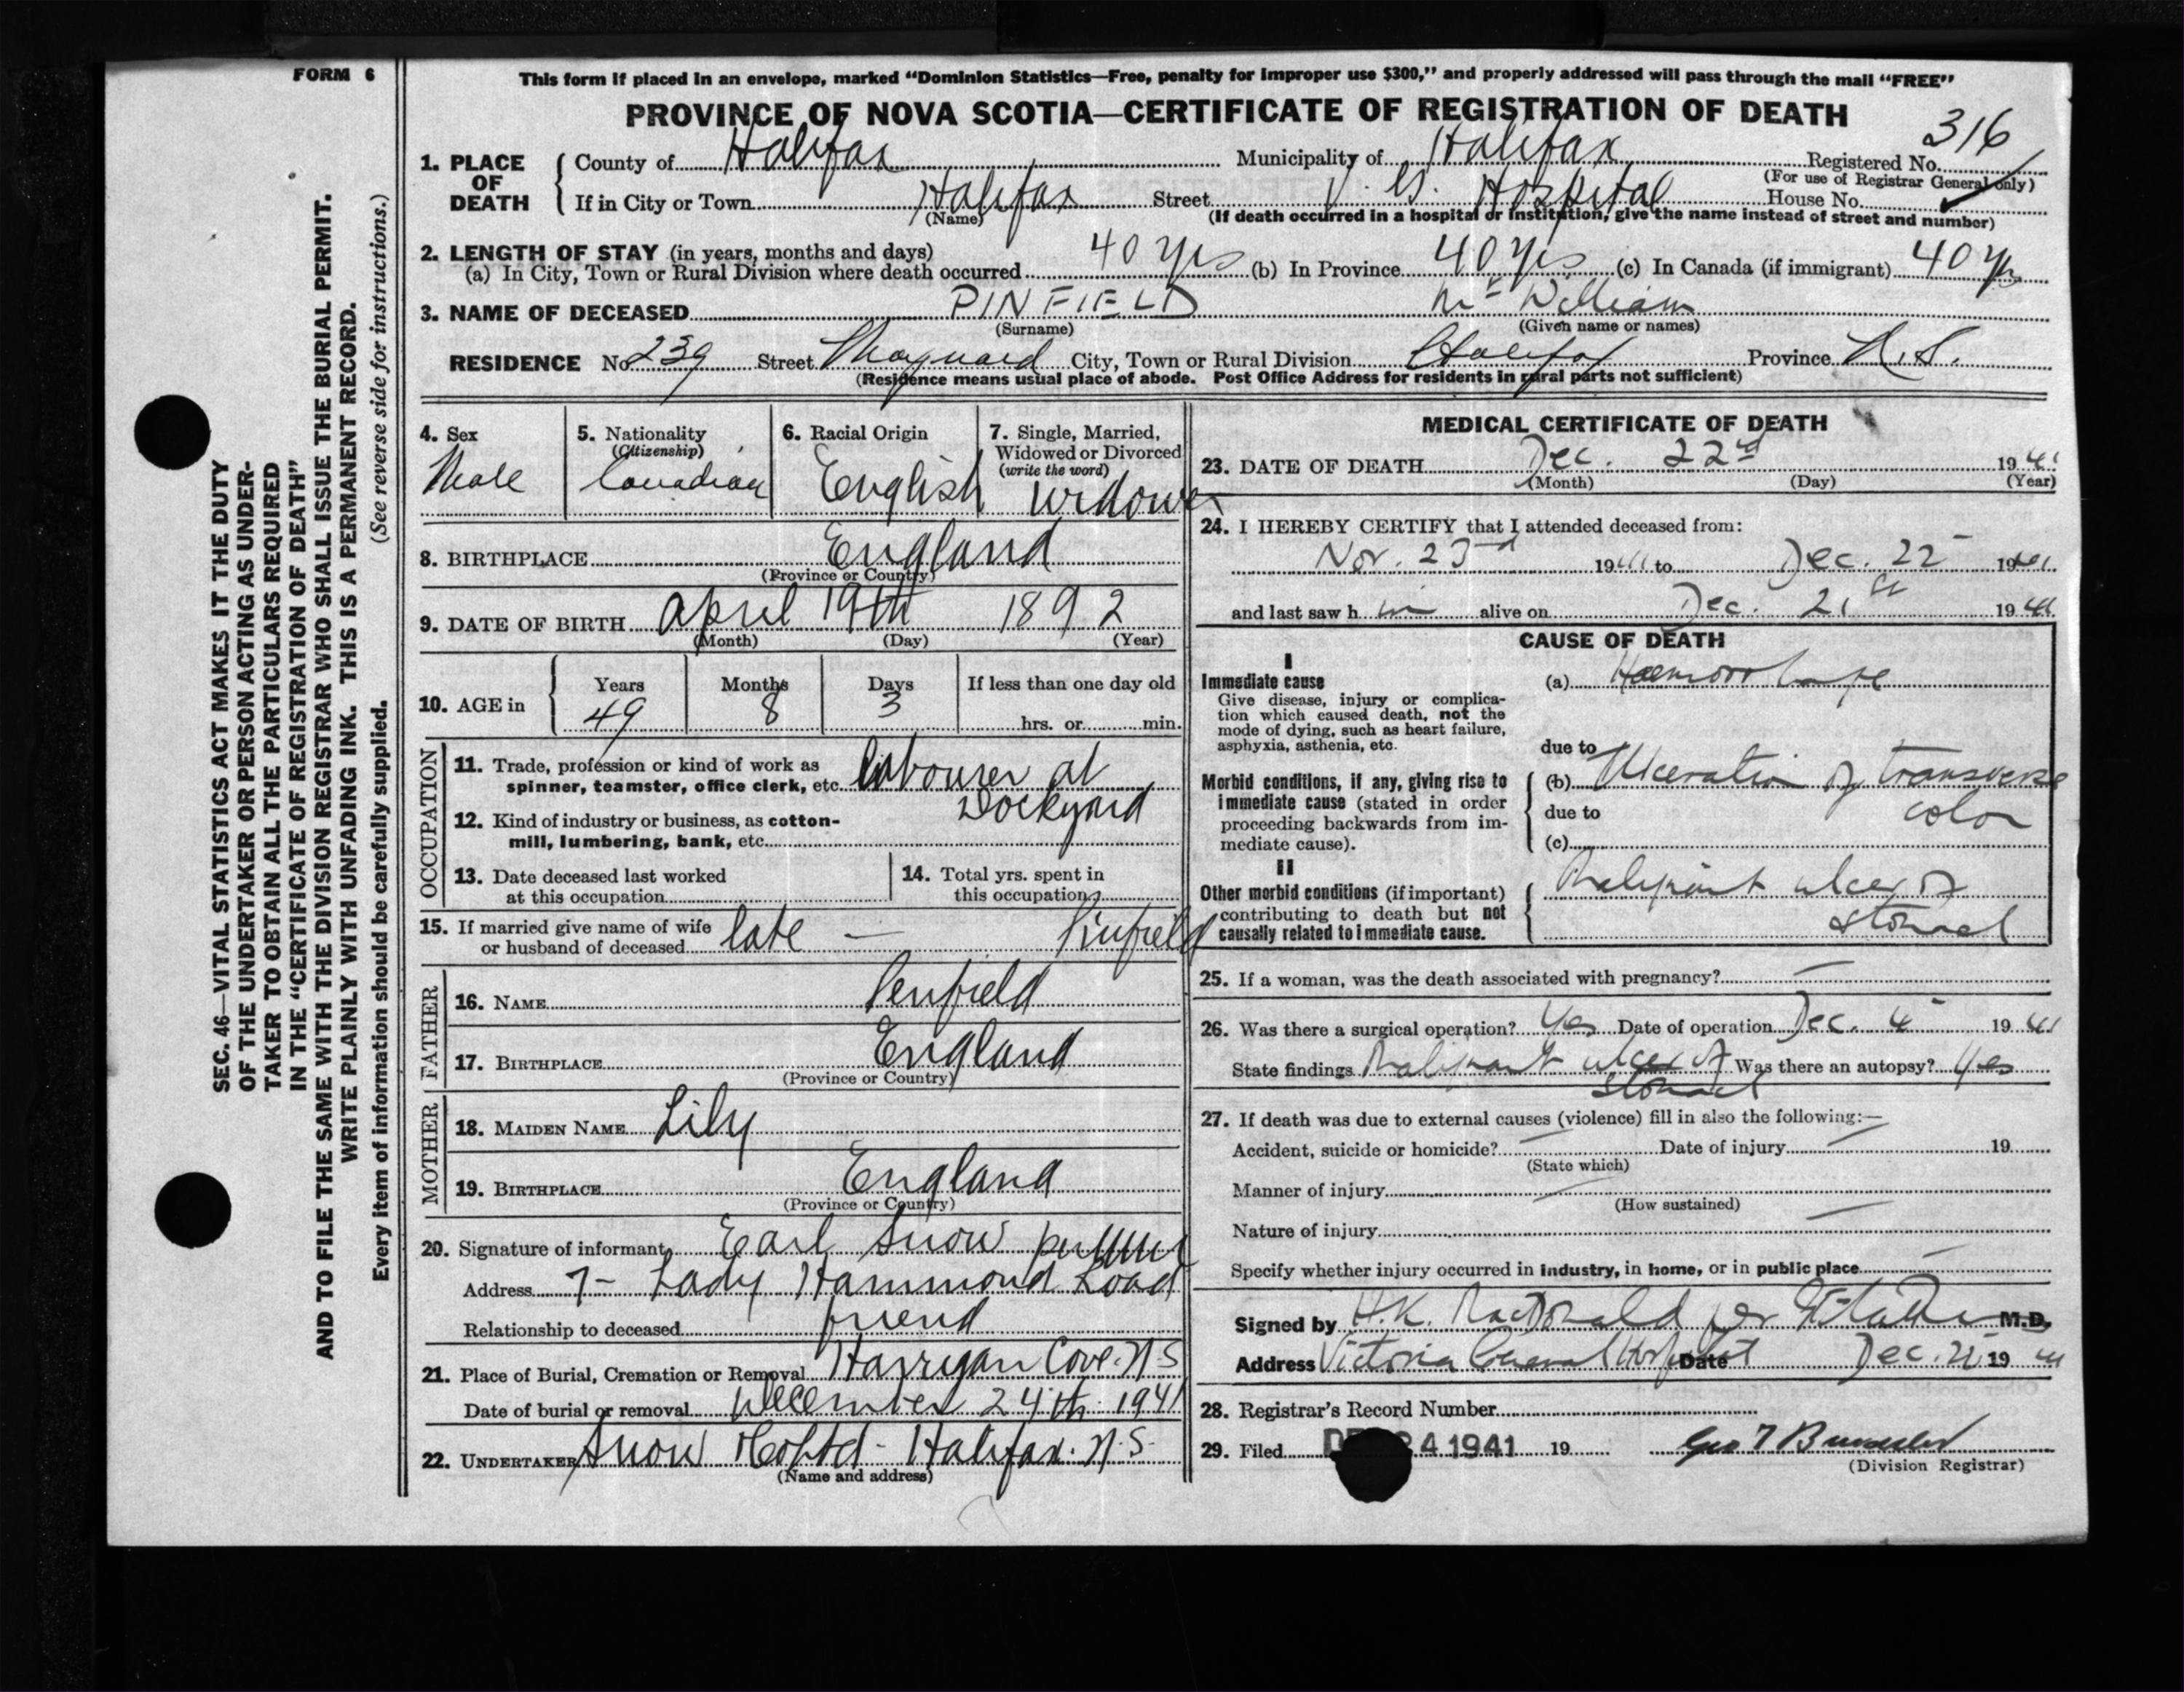 FORM 6
This form if placed in an envelope, marked “Dominion Statistics—Free, penalty for improper use $300,” and properly addressed will pass through the mail “FREE”
PROVINCE OF NOVA SCOTIA—CERTIFICATE OF REGISTRATION OF DEATH
316
1. PLACE OF DEATH { County of Halifax Municipality of Halifax Registered No.
(For use of Registrar General only)
If in City or Town Halifax Street V. G. Hospital House No.
(Name) (If death occurred in a hospital or institution, give the name instead of street and number)
2. LENGTH OF STAY (in years, months and days)
(a) In City, Town or Rural Division where death occurred 40 yrs (b) In Province 40 yrs (c) In Canada (if immigrant) 40 yrs
3. NAME OF DECEASED PINFIELD Mr William
(Surname) (Given name or names)
RESIDENCE No 239 Street Maynard City, Town or Rural Division Halifax Province N.S.
(Residence means usual place of abode. Post Office Address for residents in rural parts not sufficient)
4. Sex
Male
5. Nationality
(Citizenship)
Canadian
6. Racial Origin
English
7. Single, Married,
Widowed or Divorced
(write the word)
widower
8. BIRTHPLACE England
(Province or Country)
9. DATE OF BIRTH April 19th 1892
(Month) (Day) (Year)
10. AGE in Years Months Days If less than one day old
49 8 3 hrs. or min.
OCCUPATION
11. Trade, profession or kind of work as
spinner, teamster, office clerk, etc. labourer at
Dockyard
12. Kind of industry or business, as cotton-
mill, lumbering, bank, etc.
13. Date deceased last worked
at this occupation
14. Total yrs. spent in
this occupation
15. If married give name of wife
or husband of deceased late — Pinfield
FATHER
16. NAME Penfield
17. BIRTHPLACE England
(Province or Country)
MOTHER
18. MAIDEN NAME Lily
19. BIRTHPLACE England
(Province or Country)
20. Signature of informant Earl Snow
Address 7 - Lady Hammond Road
Relationship to deceased friend
21. Place of Burial, Cremation or Removal Harrigan Cove. N-S
Date of burial or removal December 24th 1941
22. UNDERTAKER Snow & Co Ltd - Halifax. N-S-
(Name and address)
MEDICAL CERTIFICATE OF DEATH
23. DATE OF DEATH Dec. 22nd 1941
(Month) (Day) (Year)
24. I HEREBY CERTIFY that I attended deceased from:
Nov. 23rd 1941 to Dec. 22 1941
and last saw h im alive on Dec. 21st 1941
CAUSE OF DEATH
I
Immediate cause
Give disease, injury or complica-
tion which caused death, not the
mode of dying, such as heart failure,
asphyxia, asthenia, etc.
(a) Haemorrhage
due to
Morbid conditions, if any, giving rise to
immediate cause (stated in order
proceeding backwards from im-
mediate cause).
(b) Ulceration of transverse
due to colon
(c)
II
Other morbid conditions (if important)
contributing to death but not
causally related to immediate cause.
Malignant ulcer of
stomach
25. If a woman, was the death associated with pregnancy? —
26. Was there a surgical operation? Yes Date of operation Dec. 4 1941
State findings Malignant ulcer of Was there an autopsy? Yes
stomach
27. If death was due to external causes (violence) fill in also the following:—
Accident, suicide or homicide? — Date of injury — 19
(State which)
Manner of injury —
(How sustained)
Nature of injury —
Specify whether injury occurred in industry, in home, or in public place —
Signed by H.K. MacDonald per M.D.
Address Victoria General Hospital Date Dec. 22 19 41
28. Registrar's Record Number
29. Filed DEC 24 1941 19
(Division Registrar)
SEC. 46—VITAL STATISTICS ACT MAKES IT THE DUTY
OF THE UNDERTAKER OR PERSON ACTING AS UNDER-
TAKER TO OBTAIN ALL THE PARTICULARS REQUIRED
IN THE “CERTIFICATE OF REGISTRATION OF DEATH”
AND TO FILE THE SAME WITH THE DIVISION REGISTRAR WHO SHALL ISSUE THE BURIAL PERMIT.
WRITE PLAINLY WITH UNFADING INK. THIS IS A PERMANENT RECORD.
Every item of information should be carefully supplied. (See reverse side for instructions.)